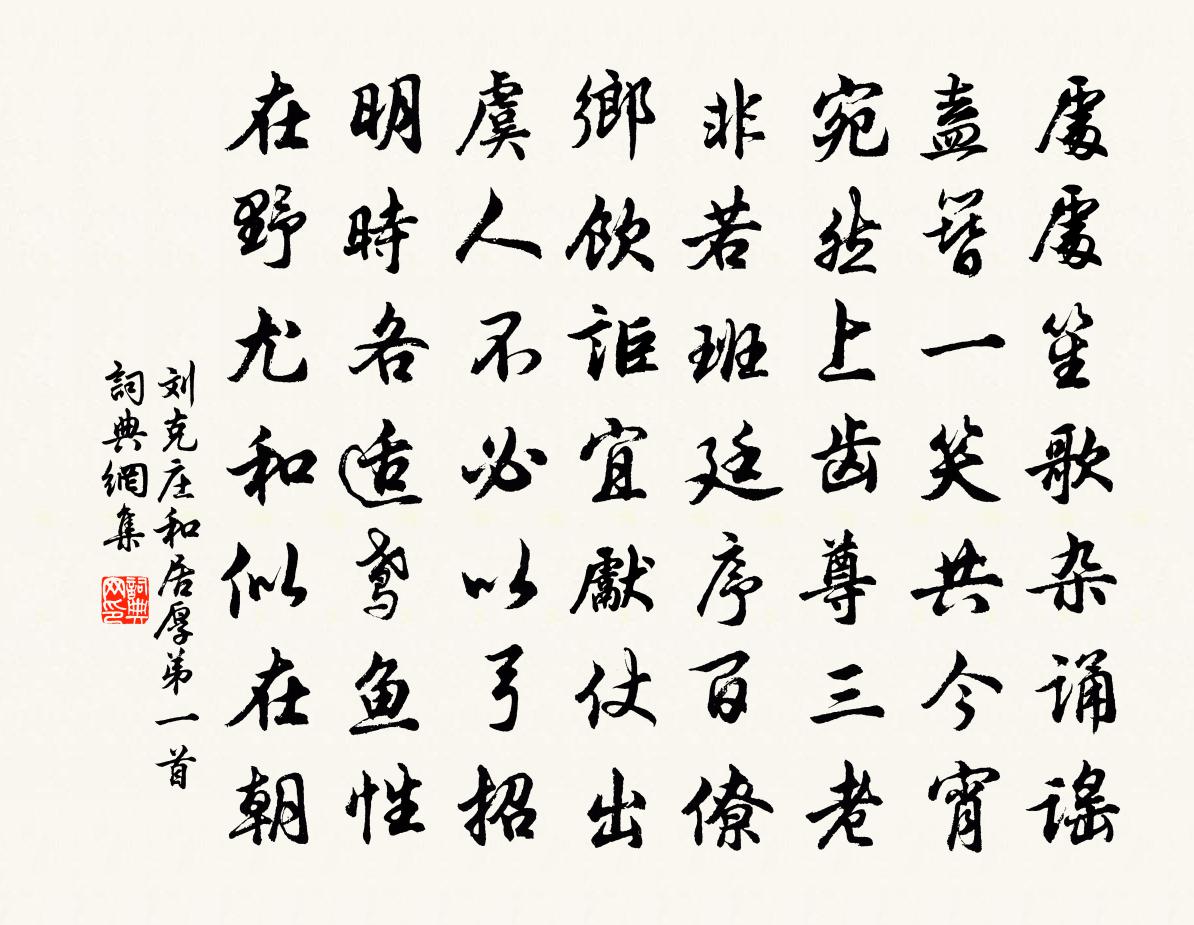 處處笙歌杂诵谣
盍簪一笑共今宵
宛然上齿尊三老
非若班廷序百僚
鄉飲詎宜獻仗出
虞人不必以弓招
明時各适鸢鱼性
在野尤和似在朝
刘克庄和居厚弟一首
詞典網集
詞典网印